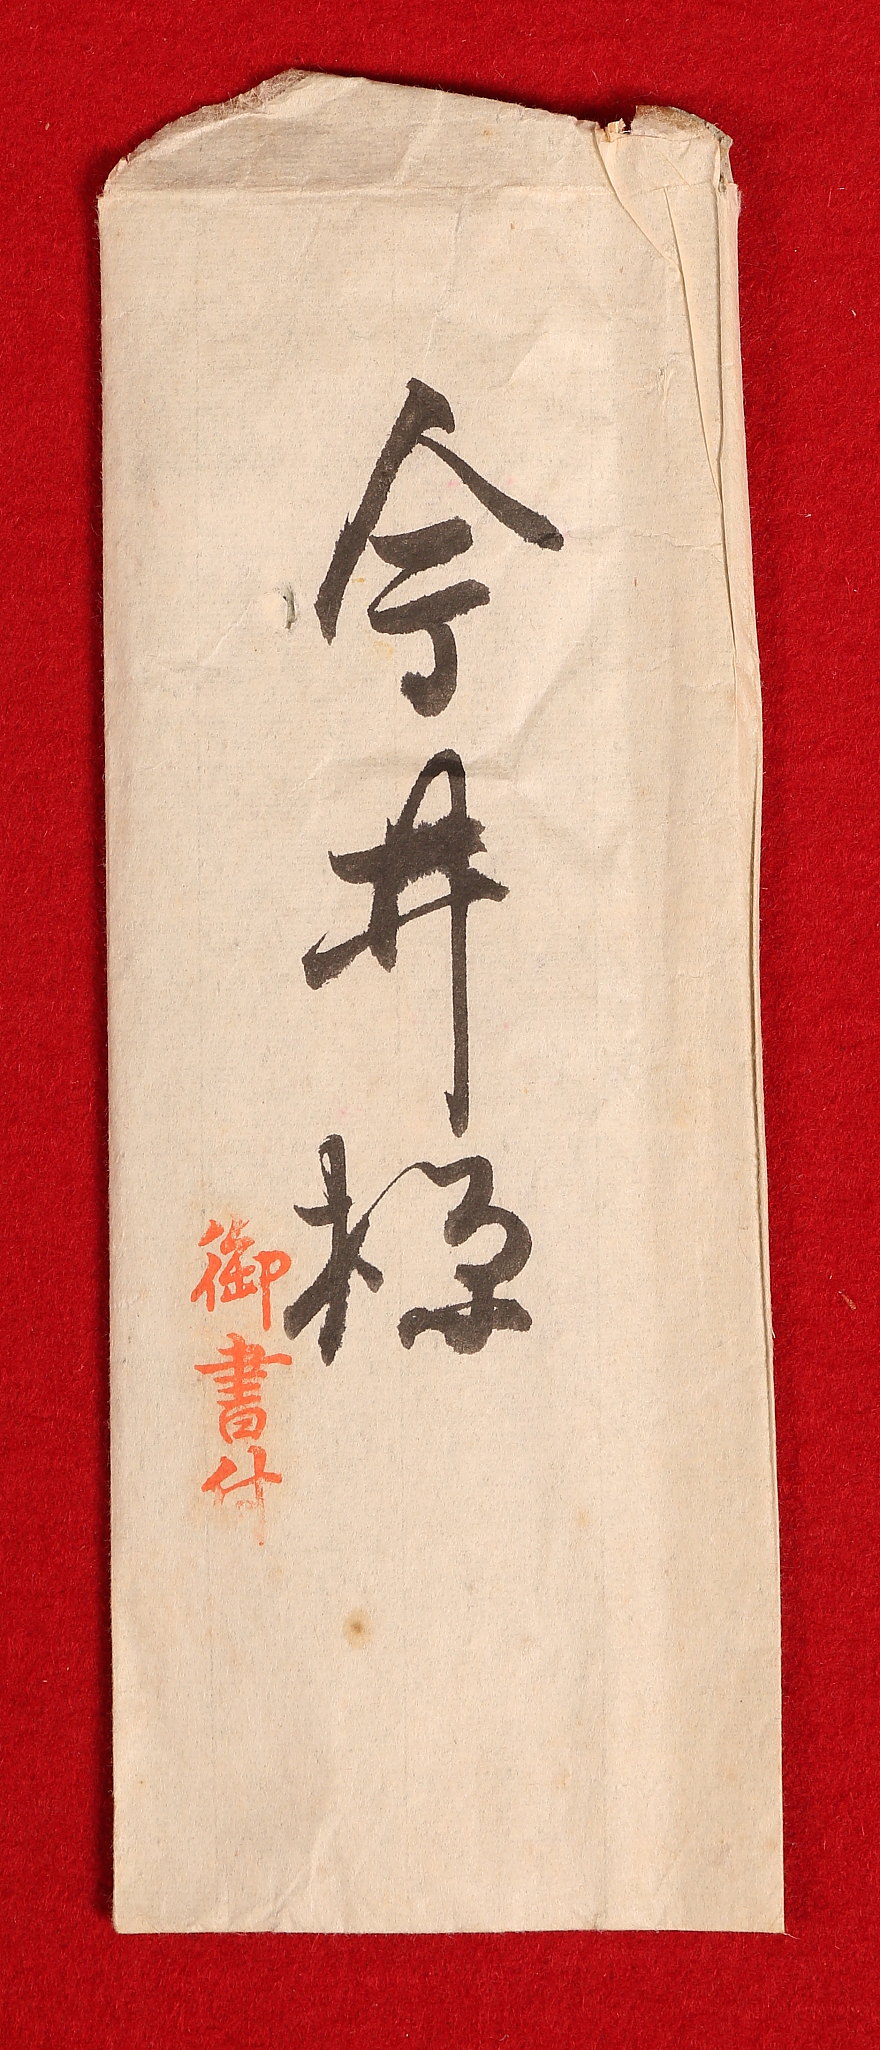 今井様
御書付